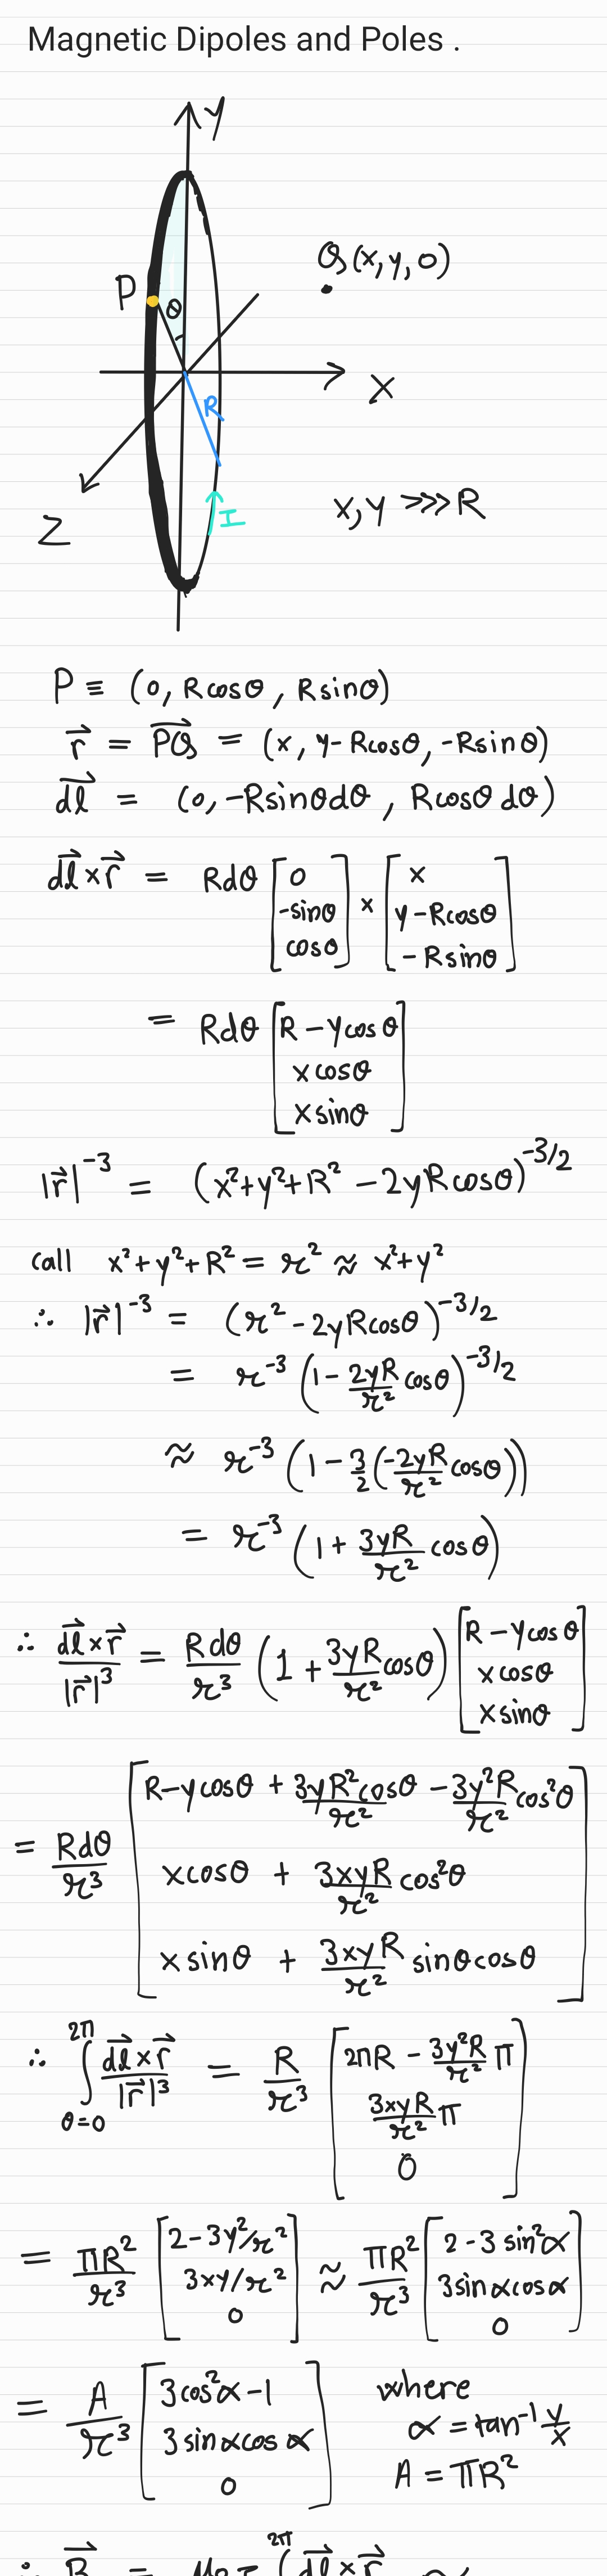 Magnetic Dipoles and Poles .
Y
Q(x, y, 0)
P
θ
X
R
I
Z
x, y >>> R
P ≡ (0, Rcosθ, Rsinθ)
r⃗ = PQ⃗ = (x, y-Rcosθ, -Rsinθ)
dl⃗ = (0, -Rsinθdθ, Rcosθ dθ)
dl⃗ × r⃗ = Rdθ [0, -sinθ, cosθ] × [x, y-Rcosθ, -Rsinθ]
= Rdθ [R - ycosθ, xcosθ, xsinθ]
|r⃗|^-3 = (x²+y²+R² - 2yRcosθ)^-3/2
call x²+y²+R² = r² ≈ x²+y²
∴ |r⃗|^-3 = (r² - 2yRcosθ)^-3/2
= r^-3 (1 - 2yR/r² cosθ)^-3/2
≈ r^-3 (1 - 3/2 (-2yR/r² cosθ))
= r^-3 (1 + 3yR/r² cosθ)
∴ dl⃗×r⃗/|r⃗|³ = Rdθ/r³ (1 + 3yR/r² cosθ) [R - ycosθ, xcosθ, xsinθ]
= Rdθ/r³ [R-ycosθ + 3yR²cosθ/r² - 3y²R/r² cos²θ, xcosθ + 3xyR/r² cos²θ, xsinθ + 3xyR/r² sinθcosθ]
∴ ∫θ=0^2π dl⃗×r⃗/|r⃗|³ = R/r³ [2πR - 3y²R/r² π, 3xyR/r² π, 0]
= πR²/r³ [2-3y²/r², 3xy/r², 0] ≈ πR²/r³ [2-3sin²α, 3sinαcosα, 0]
= A/r³ [3cos²α-1, 3sinαcosα, 0] where
α = tan⁻¹ y/x
A = πR²